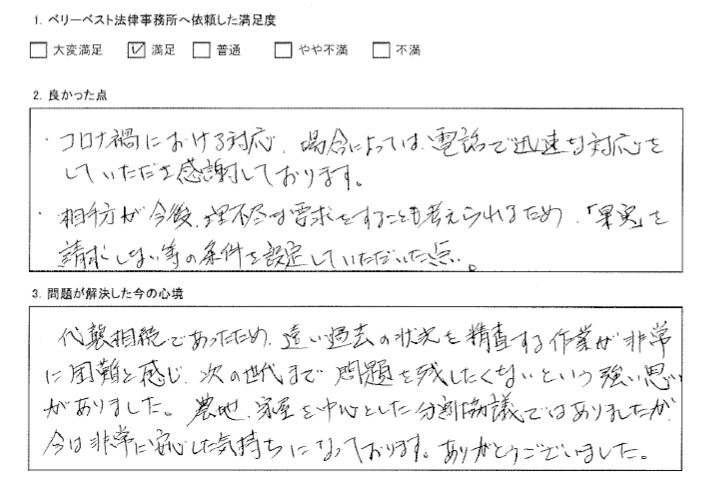 1. ベリーベスト法律事務所へ依頼した満足度
□ 大変満足 ☑ 満足 □ 普通 □ やや不満 □ 不満
2. 良かった点
・コロナ禍における対応、場合によっては、電話で迅速な対応を
していただき感謝しております。
・相手方が今後、理不尽な要求をすることも考えられるため、「果実」を
請求しない等の条件を設定していただいた点。
3. 問題が解決した今の心境
代襲相続であったため、遠い過去の状況を精査する作業が非常
に困難と感じ、次の世代まで問題を残したくないという強い思い
がありました。農地、家屋を中心とした分割協議ではありましたが、
今は非常に安心した気持ちになっております。ありがとうございました。